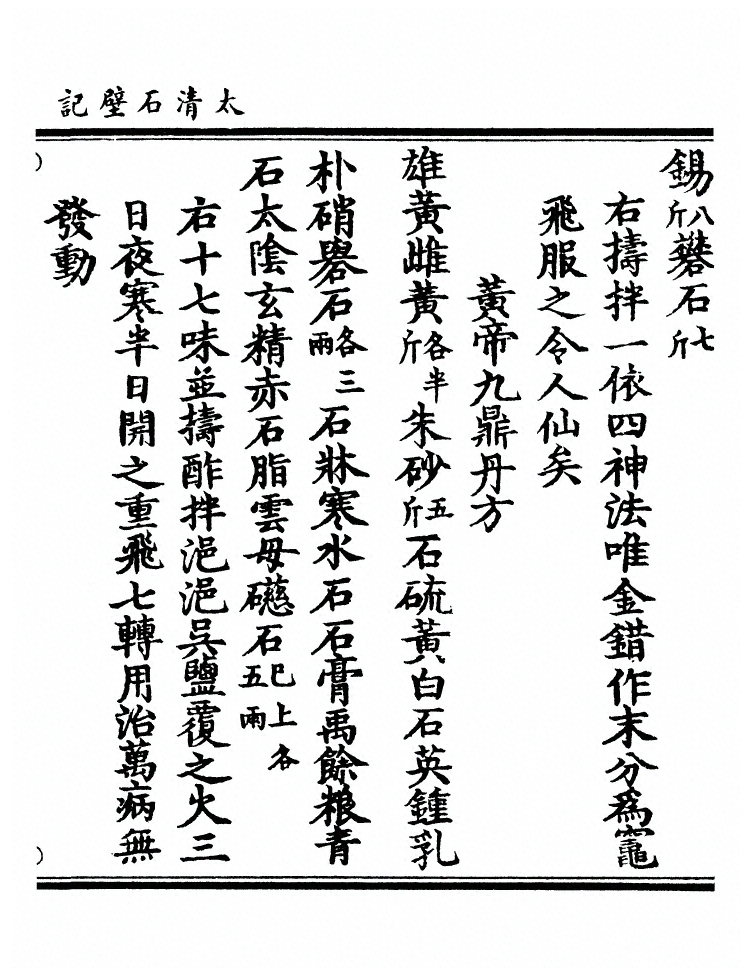 太清石壁記
錫八斤礬石七斤
右擣拌一依四神法唯金錯作末分為竈
飛服之令人仙矣
黃帝九鼎丹方
雄黃雌黃各半斤朱砂五斤石硫黃白石英鍾乳
朴硝礜石各三兩石牀寒水石石膏禹餘粮青
石太陰玄精赤石脂雲母磁石已上各五兩
右十七味並擣酢拌浥浥吳鹽覆之火三
日夜寒半日開之重飛七轉用治萬病無
發動